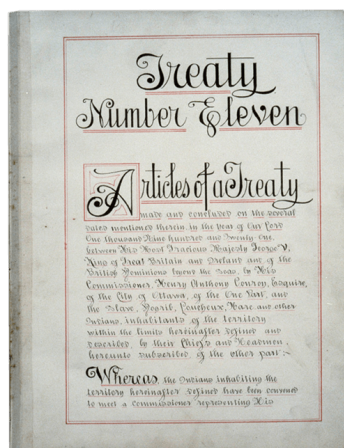 Treaty
Number Eleven
Articles of a Treaty
made and concluded on the several
dates mentioned therein, in the year of Our Lord
One thousand Nine hundred and Twenty One,
between His Most Gracious Majesty George V,
King of Great Britain and Ireland and of the
British Dominions beyond the Seas, by His
Commissioner, Henry Anthony Conroy, Esquire,
of the City of Ottawa, of the One Part, and
the Slave, Dogrib, Loucheux, Hare and other
Indians, inhabitants of the territory
within the limits hereinafter defined and
described, by their Chiefs and Headmen,
hereunto subscribed, of the other part:~
Whereas, the Indians inhabiting the
territory hereinafter defined have been convened
to meet a commissioner representing His